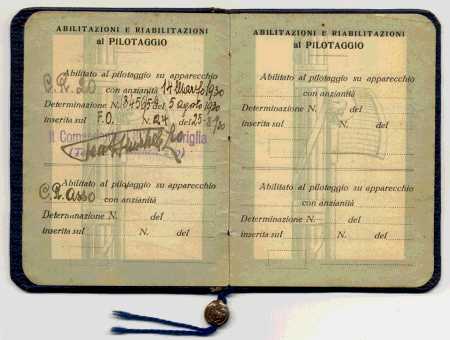 ABILITAZIONI E RIABILITAZIONI
al PILOTAGGIO
Abilitato al pilotaggio su apparecchio
C.R. 20 con anzianità 14 Marzo 1930
Determinazione N. 84565 del 5 agosto 1930
inserita sul F.O. N. 24 del 25-8-930
Il Comandante Squadriglia
Abilitato al pilotaggio su apparecchio
C.R. Asso con anzianità
Determinazione N. del
inserita sul N. del
ABILITAZIONI E RIABILITAZIONI
al PILOTAGGIO
Abilitato al pilotaggio su apparecchio
con anzianità
Determinazione N. del
inserita sul N. del
Abilitato al pilotaggio su apparecchio
con anzianità
Determinazione N. del
inserita sul N. del